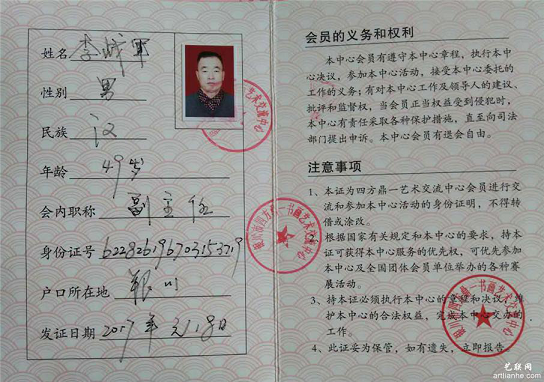 姓名 李城军
性别 男
民族 汉
年龄 49岁
会内职称 副主任
身份证号
户口所在地 银川
发证日期
会员的义务和权利
本中心会员有遵守本中心章程，执行本中
心决议，参加本中心活动，接受本中心委托的
工作的义务；有对本中心工作及领导人的建议、
批评和监督权，当会员正当权益受到侵犯时，
本中心有责任采取各种保护措施，直至向司法
部门提出申诉。本中心会员有退会自由。
注意事项
1、本证为四方鼎一艺术交流中心会员进行交
流和参加本中心活动的身份证明，不得转
借或涂改。
2、根据国家有关规定和本中心的要求，持本
证可获得本中心服务的优先权，可优先参加
本中心及全国团体会员单位举办的各种赛
展活动。
3、持本证必须执行本中心的章程和决议，维
护本中心的合法权益，完成本中心交办的
工作。
4、此证妥为保管，如有遗失，立即报告
艺联网
artlianhe.com